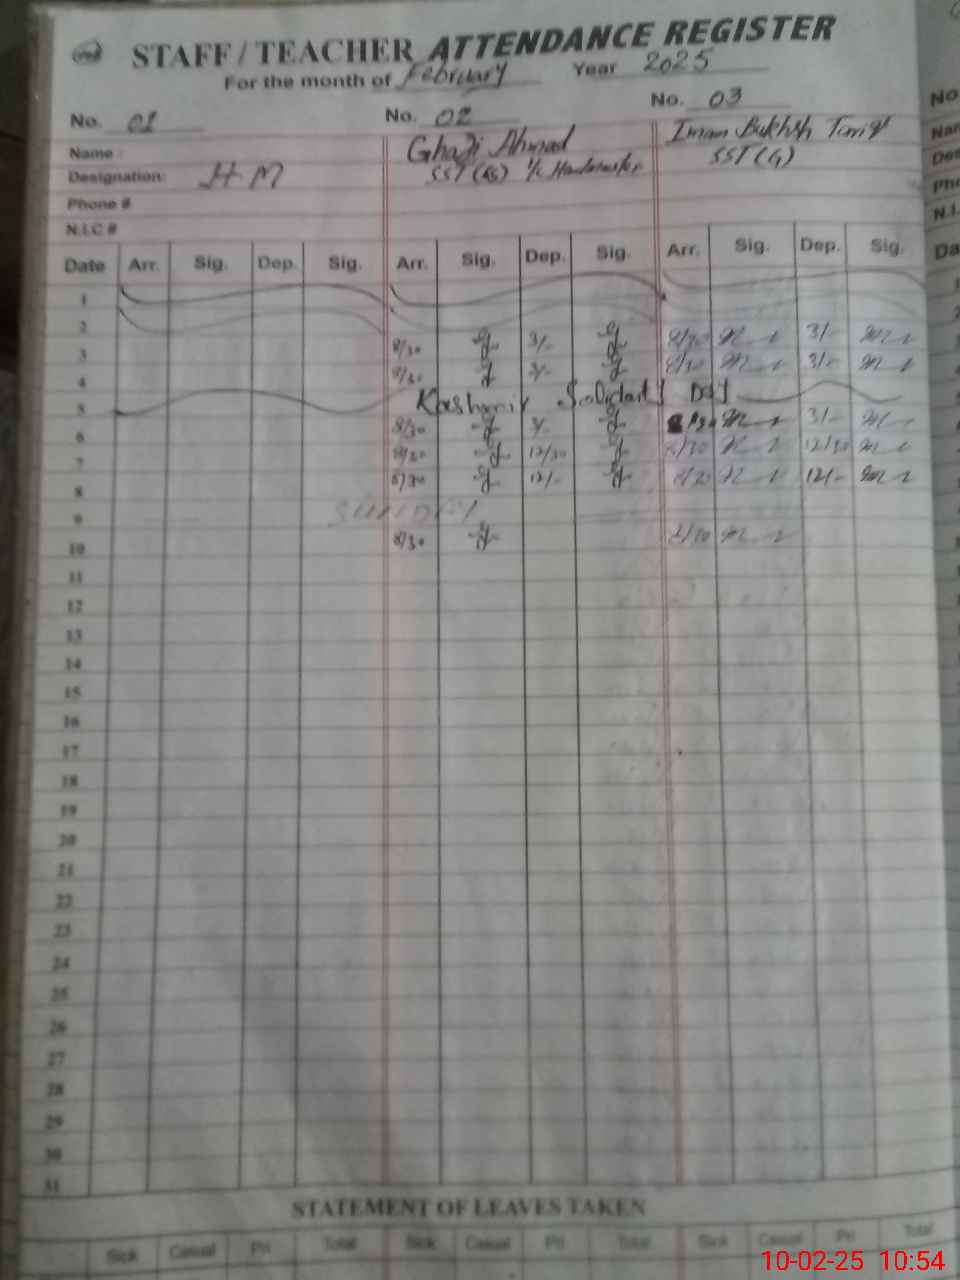 STAFF / TEACHER ATTENDANCE REGISTER
For the month of February Year 2025
No. 01 No. 02 No. 03
Name : Ghazi Ahmad Imam Bukhsh Tariq
Designation: H M SST (G)
Phone #
N.I.C #
Date Arr. Sig. Dep. Sig. Arr. Sig. Dep. Sig. Arr. Sig. Dep. Sig.
1
2
3 8/30 3/- 8/30 3/-
4 8/30 3/- 8/30 3/-
5 Kashmir Solidarity Day
6 8/30 3/- 3/-
7 8/30 12/30 8/30 12/30
8 8/30 12/- 8/30 12/-
9 SUNDAY
10 8/30 8/30
11
12
13
14
15
16
17
18
19
20
21
22
23
24
25
26
27
28
29
30
31
STATEMENT OF LEAVES TAKEN
Sick Casual Pri Total Sick Casual Pri Total Sick Casual Pri Total
10-02-25 10:54